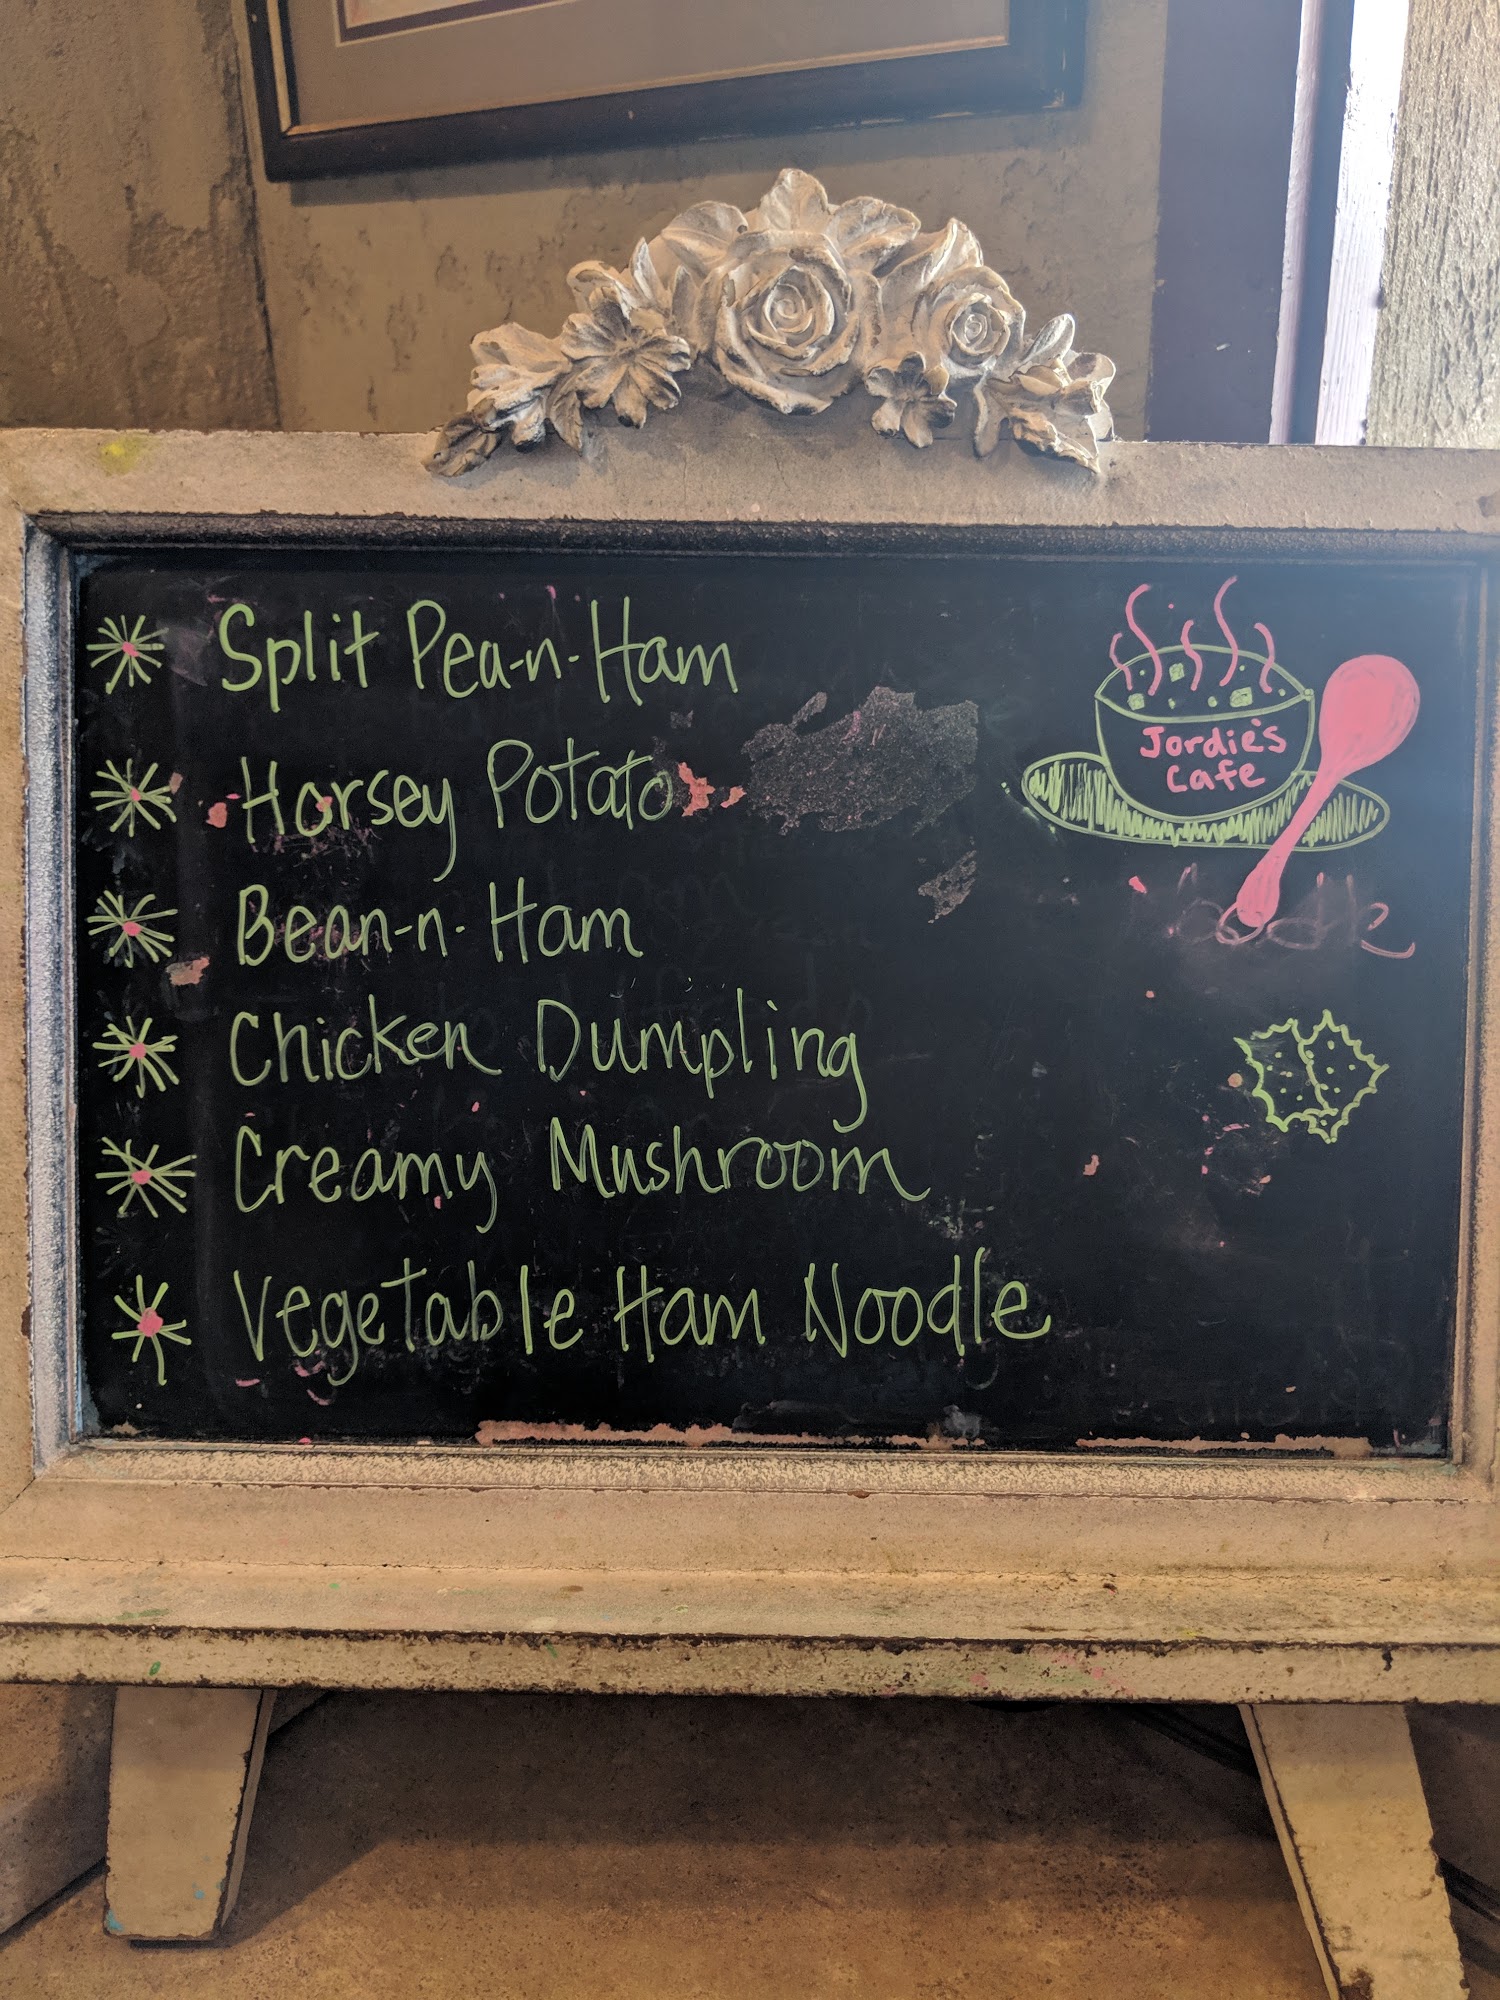 Split Pea-n-Ham
Horsey Potato
Bean-n-Ham
Chicken Dumpling
Creamy Mushroom
Vegetable Ham Noodle
Jordie's
Cafe